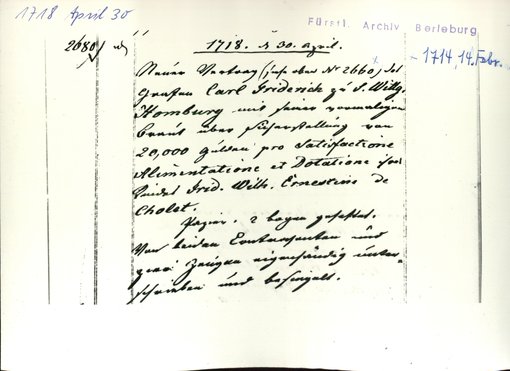 1718 April 30
Fürstl. Archiv Berleburg
- 1714, 14. Febr.
2680
1718. d 30. April.
Neuer Vertrag (siehe oben № 2660) des
Grafen Carl Friderich zu S. Wittg.
Homburg mit seiner vormaligen
Braut über Sicherstellung von
20,000 gulden pro Satisfactione
Alimentatione et Dotatione
Frid. Wilh. Ernestine de
Cholet.
Papier. 2 bogen geheftet.
Von beiden Contrahenten und
zwei Zeugen eigenhändig unter-
schrieben und besiegelt.